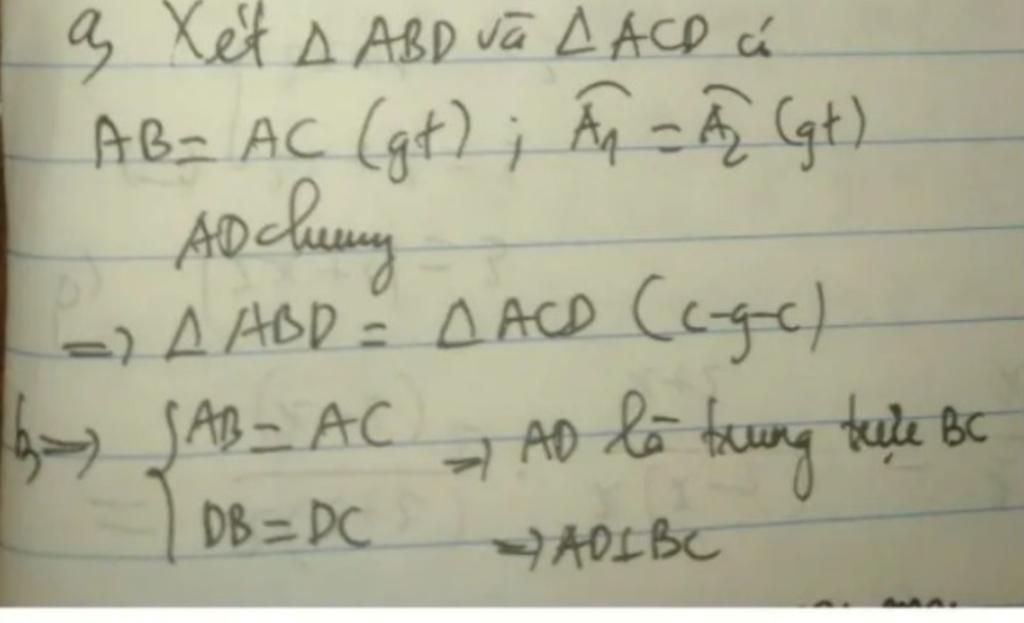 a, Xét Δ ABD và Δ ACD có
AB = AC (gt) ; Â1 = Â2 (gt)
AD chung
=> Δ ABD = Δ ACD (c-g-c)
b, => { AB = AC => AD là trung trực BC
DB = DC => AD ⊥ BC